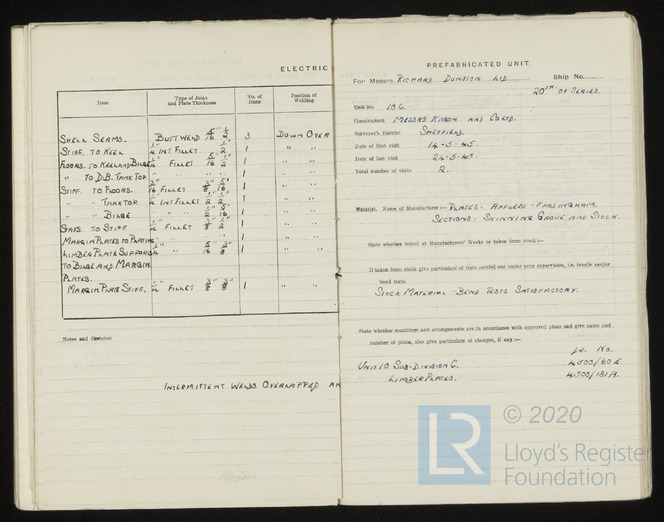 ELECTRIC
Item Type of Joint and Plate Thickness No. of Runs Position of Welding
SHELL SEAMS. BUTT WELD 5/16" 1/2" 3 DOWN OVER
STIFF. TO KEEL 1/4 INT FILLET 1/2" 1 " "
FLOORS. TO KEEL AND BILGE 1/4" FILLET 5/16" 1/2" 1 " "
" TO D.B. TANK TOP " " 1 " "
STIFF. TO FLOORS. 3/16" FILLET 3/8" 5/16" 1 " "
" " TANK TOP 1/4 INT FILLET 1 " "
" " BILGE " " 1 " "
STAYS. TO STIFF 1/4" FILLET 1 " "
MARGIN PLATES TO PLATING " " 1 " "
LIMBER PLATE SUPPORTS 1/4" " 5/16" 3/8" 1 " "
TO BILGE AND MARGIN
PLATES.
MARGIN PLATE STIFF. 1/4" FILLET 3/8" 3/8" 1 " "
Notes and Sketches
INTERMITTENT WELDS OVERLAPPED AN
PREFABRICATED UNIT.
For Messrs. RICHARD DUNSTON LTD Ship No.
20TH OF SERIES.
Unit No. 10 C.
Constructors MESSRS. KITSON AND CO LTD.
Surveyor's District SHEFFIELD.
Date of first visit 14-5-45.
Date of last visit 24-5-45.
Total number of visits 2.
Material. Name of Manufacturer:— PLATES - APPLEBY - FRODINGHAM.
SECTIONS - SKINNING GROVE AND STOCK.
State whether tested at Manufacturers' Works or taken from stock:—
If taken from stock give particulars of tests carried out under your supervision, i.e. tensile and/or
bend tests.
STOCK MATERIAL - BEND TESTS SATISFACTORY.
State whether scantlings and arrangements are in accordance with approved plans and give name and
number of plans, also give particulars of changes, if any:—
DR. NO.
UNIT 10 SUB-DIVISION C. 4500/60E
LIMBER PLATES. 4500/181A.
© 2020
LR Lloyd's Register
Foundation